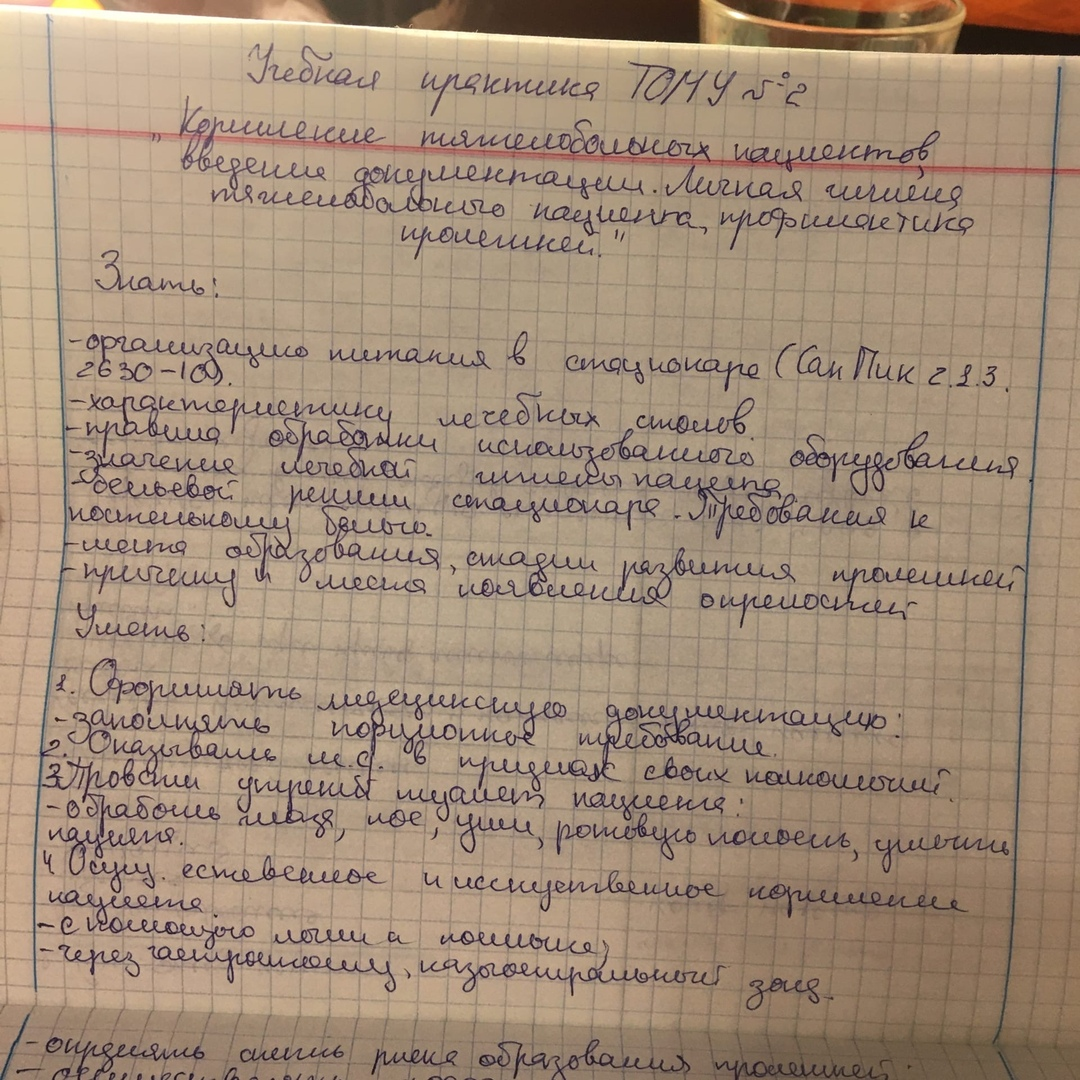 Учебная практика ТОМУ №2
"Кормление тяжелобольных пациентов,
введение документации. Личная гигиена
тяжелобольного пациента, профилактика
пролежней."
Знать:
-организацию питания в стационаре (СанПин 2.1.3.
2630-10).
-характеристику лечебных столов.
-правила обработки использованного оборудования.
-значение лечебной гигиены пациента
-бельевой режим стационара. Требования к
постельному белью.
-места образования, стадии развития пролежней
-причину и места появления опрелостей
Уметь:
1. Оформлять медицинскую документацию:
-заполнять порционное требование.
2. Оказывать м.с. в приделах своих полномочий.
3. Провести утренний туалет пациента:
-обработать глаза, нос, уши, ротовую полость, умыть
пациента.
4 Осущ. естевенное и исскуственное кормление
пациента.
-с помощью ложки и поильника;
-через гастростому, назогастральный зонд.
-определять степь риска образования пролежней.